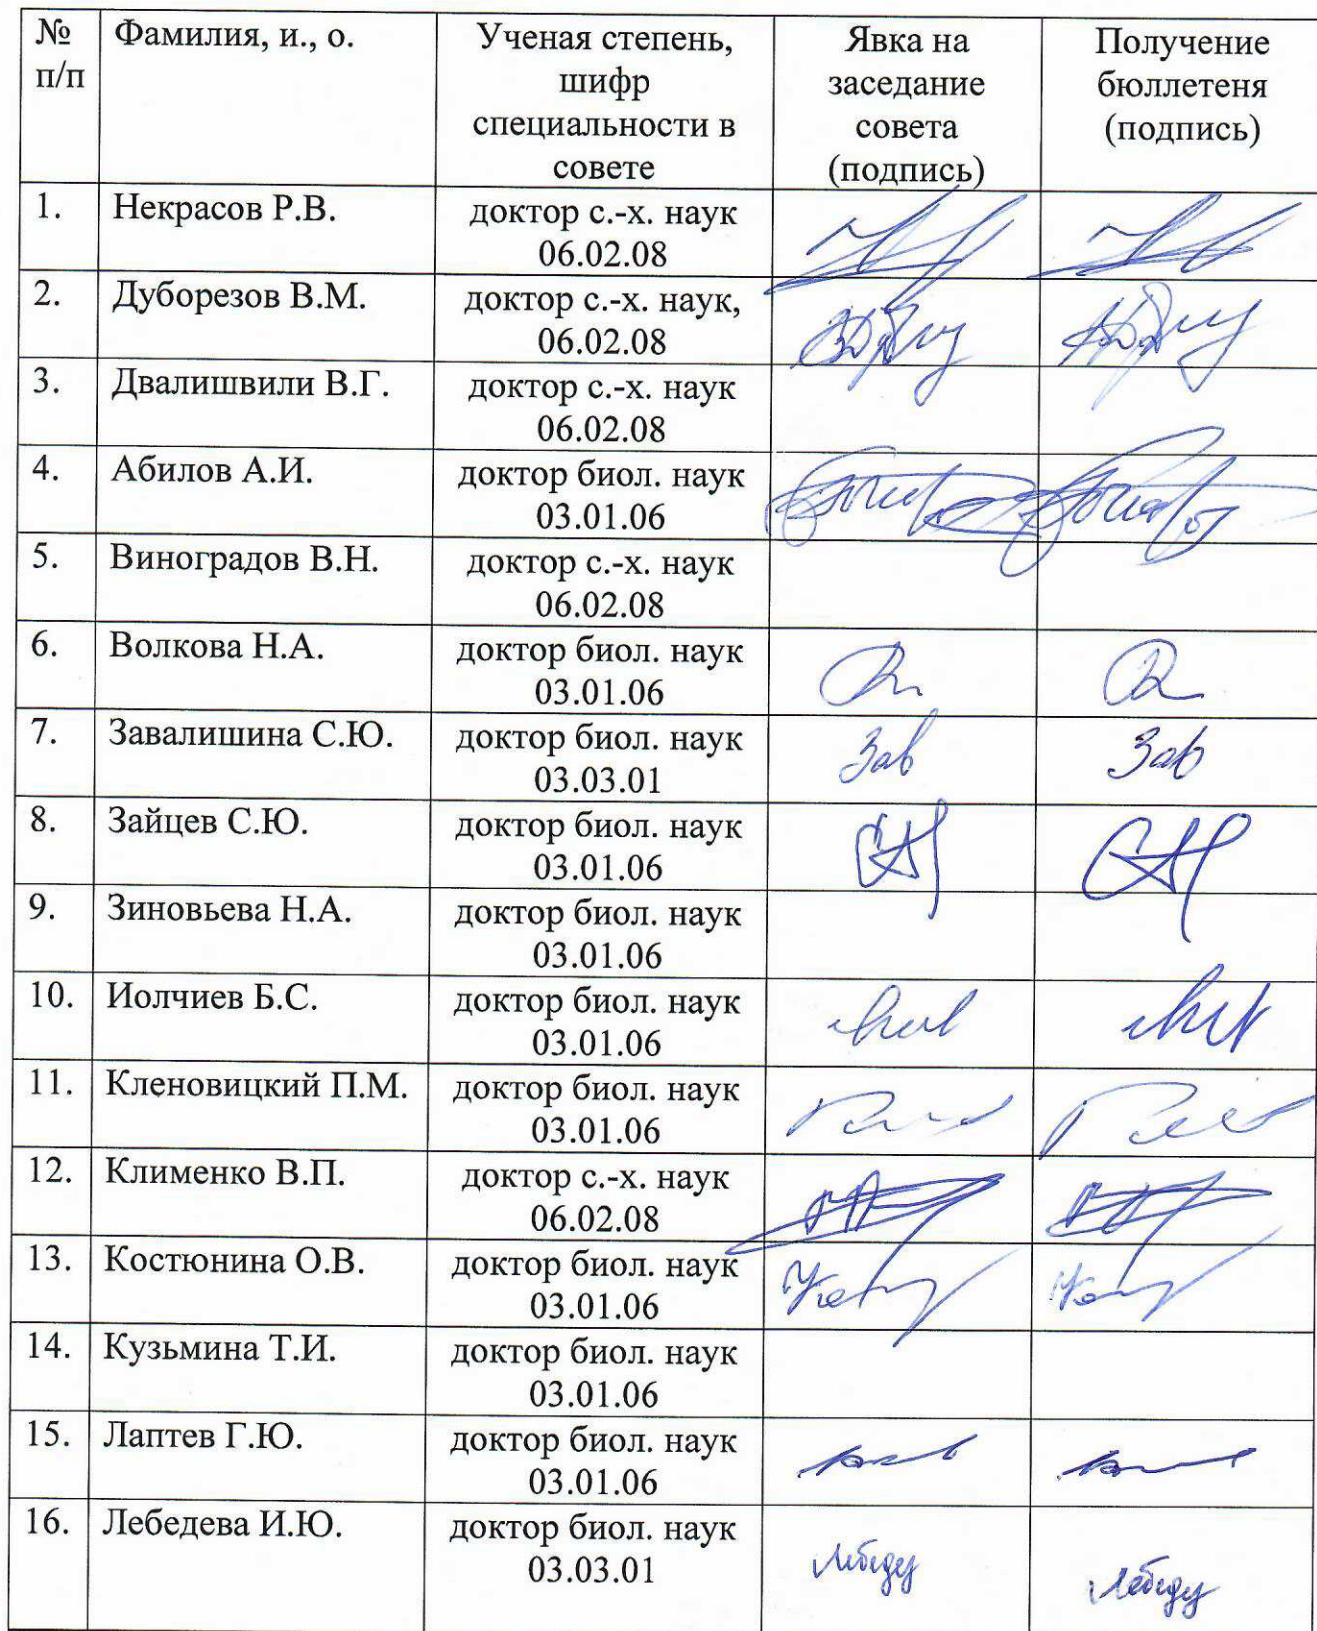 № п/п Фамилия, и., о. Ученая степень, шифр специальности в совете Явка на заседание совета (подпись) Получение бюллетеня (подпись)
1. Некрасов Р.В. доктор с.-х. наук
06.02.08
2. Дуборезов В.М. доктор с.-х. наук,
06.02.08
3. Двалишвили В.Г. доктор с.-х. наук
06.02.08
4. Абилов А.И. доктор биол. наук
03.01.06
5. Виноградов В.Н. доктор с.-х. наук
06.02.08
6. Волкова Н.А. доктор биол. наук
03.01.06
7. Завалишина С.Ю. доктор биол. наук Зав Зав
03.03.01
8. Зайцев С.Ю. доктор биол. наук
03.01.06
9. Зиновьева Н.А. доктор биол. наук
03.01.06
10. Иолчиев Б.С. доктор биол. наук
03.01.06
11. Кленовицкий П.М. доктор биол. наук
03.01.06
12. Клименко В.П. доктор с.-х. наук
06.02.08
13. Костюнина О.В. доктор биол. наук
03.01.06
14. Кузьмина Т.И. доктор биол. наук
03.01.06
15. Лаптев Г.Ю. доктор биол. наук
03.01.06
16. Лебедева И.Ю. доктор биол. наук
03.03.01